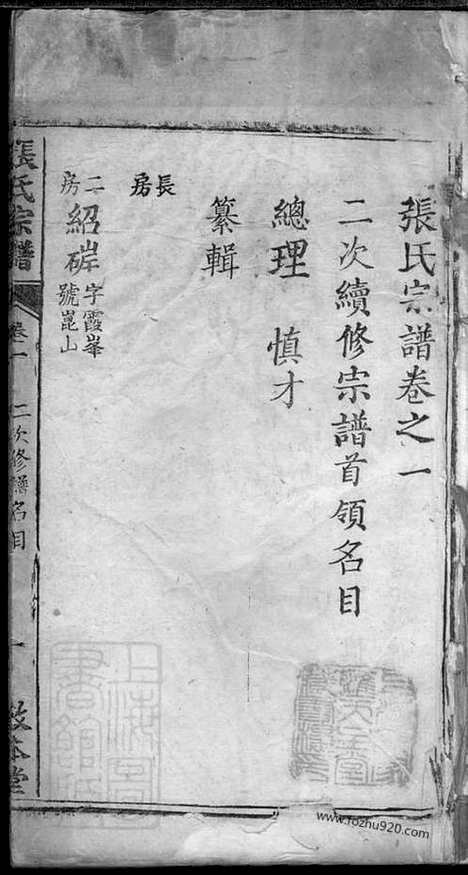 張氏宗譜卷之一
二次續修宗譜首領名目
總理 慎才
纂輯
長房
二房 紹𡹬 字霞峯 號崑山
張氏宗譜 卷一 二次修譜名目 一 敦本堂
www.fozhu920.com